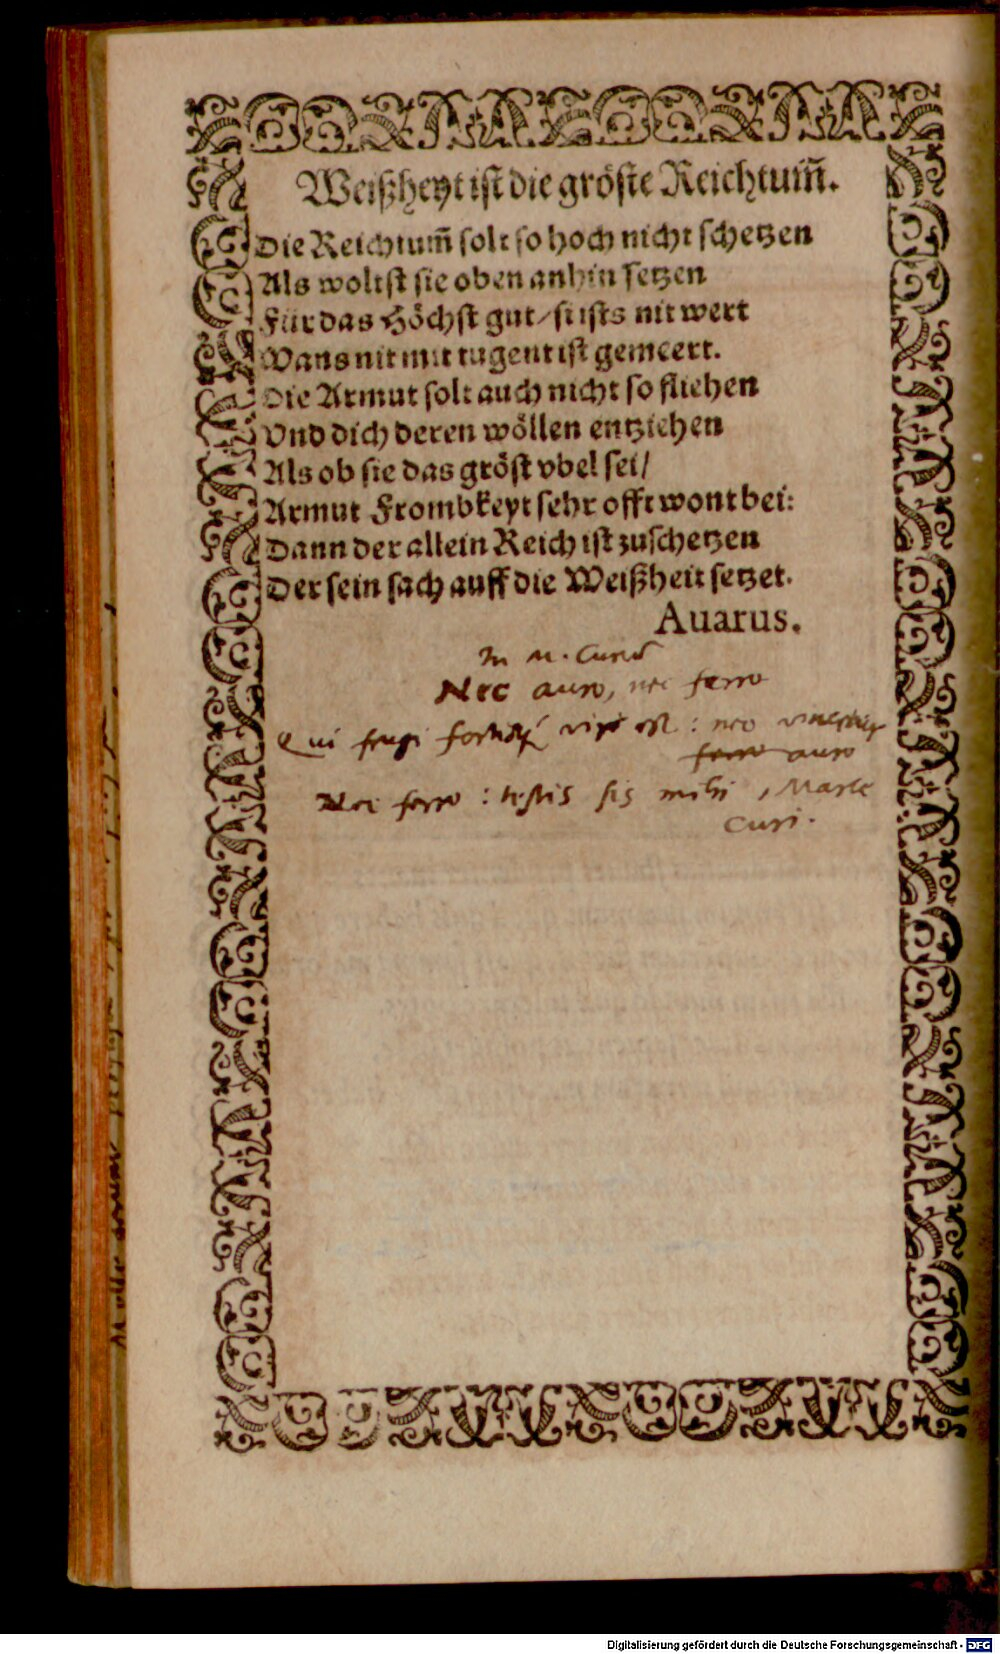 Weißheyt ist die gröste Reichtum̃.
Die Reichtum̃ solt so hoch nicht schetzen
Als woltst sie oben anhin setzen
Für das Höchst gut / si ists nit wert
Wans nit mit tugent ist gemeert.
Die Armut solt auch nicht so fliehen
Und dich deren wöllen entziehen
Als ob sie das gröst vbel sei /
Armut Frombkeyt sehr offt wont bei:
Dann der allein Reich ist zuschetzen
Der sein sach auff die Weißheit setzet.
Avarus.
In M. Curiū
Nec auro, nec ferro
Qui frugi fortisq́ vir est: nec vincitur
ferro auro
Nec ferro: testis sis mihi, Marce
Curi.
Digitalisierung gefördert durch die Deutsche Forschungsgemeinschaft - DFG